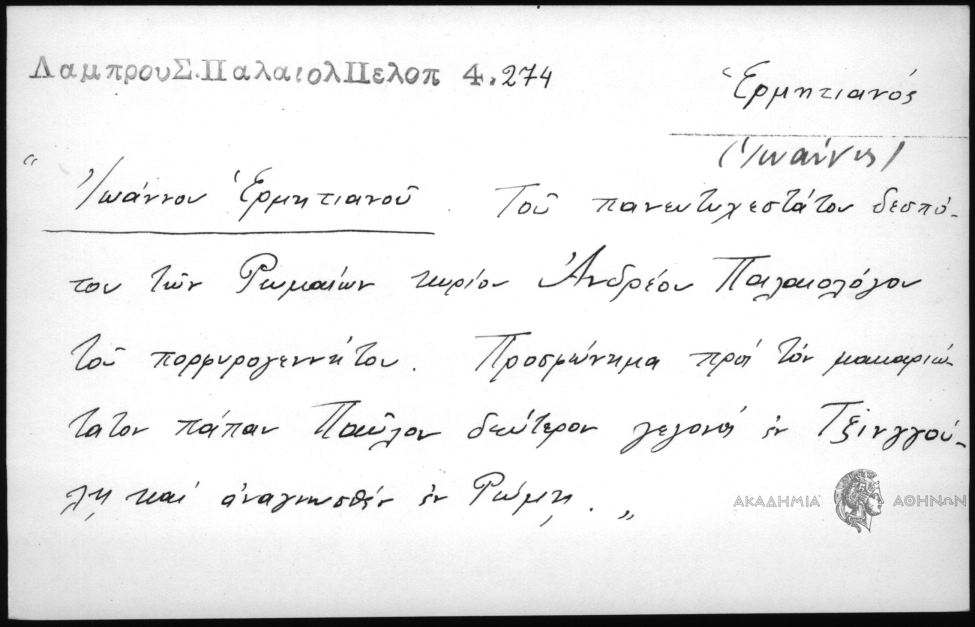 ΛαμπρουΣ.ΠαλαιολΠελοπ 4.274
Ἑρμητιανός
(Ἰωάννης)
“ Ἰωάννου Ἑρμητιανοῦ. Τοῦ πανευτυχεστάτου δεσπό-
του τῶν Ῥωμαίων κυρίου Ἀνδρέου Παλαιολόγου
τοῦ πορφυρογεννήτου. Προσφώνημα πρὸς τὸν μακαριώ-
τατον πάπαν Παῦλον δεύτερον γεγονὸς ἐν Τζινγγού-
λῃ καὶ ἀναγνωσθὲν ἐν Ῥώμῃ. „
ΑΚΑΔΗΜΙΑ ΑΘΗΝΩΝ